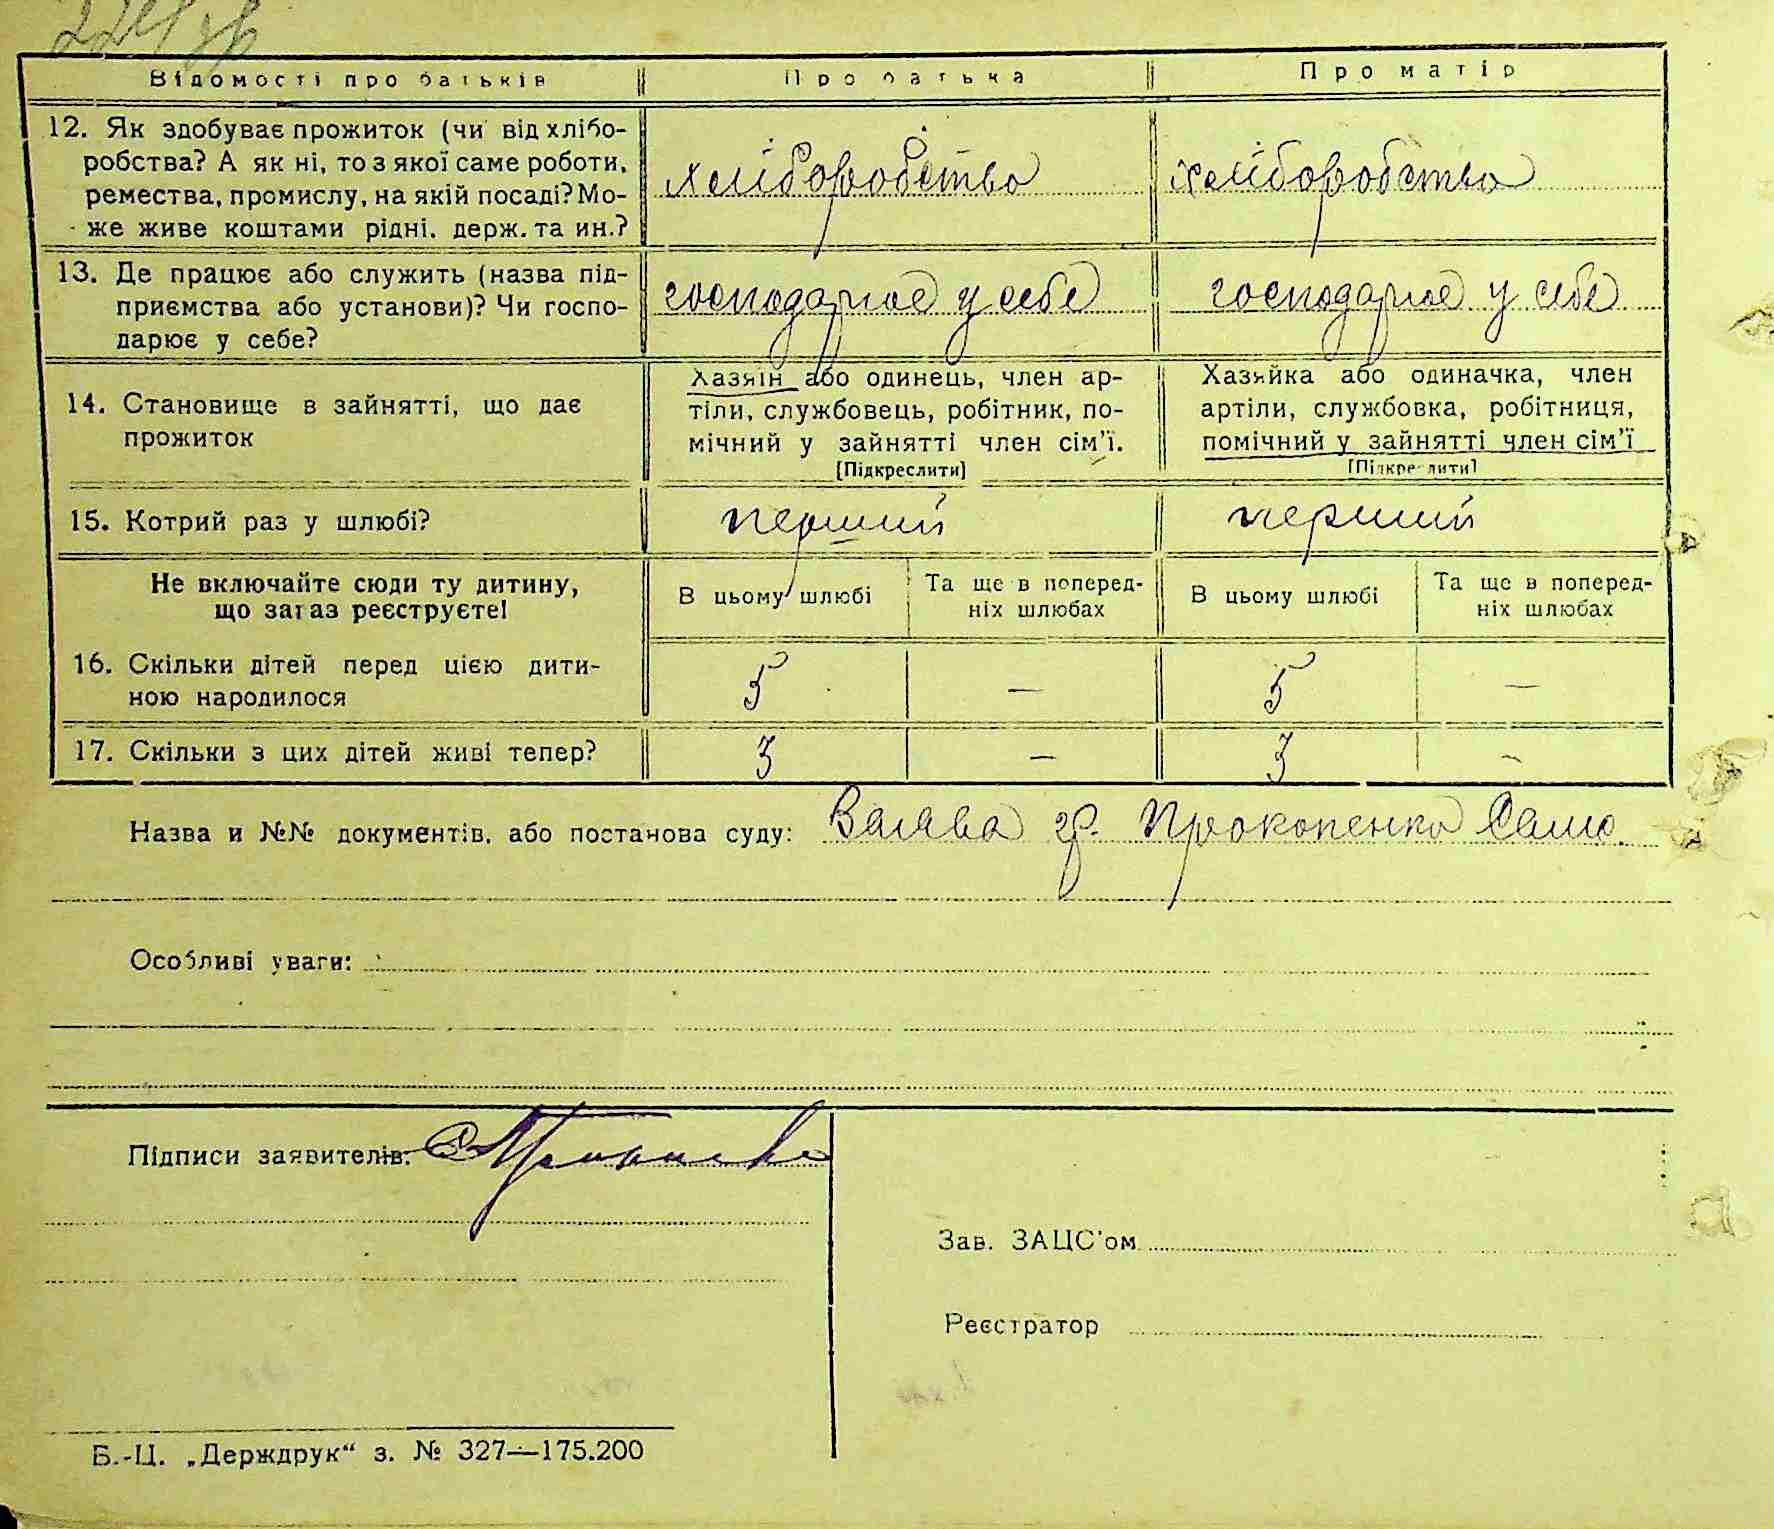 224 зв
Відомості про батьків Про батька Про матір
12. Як здобуває прожиток (чи від хлібо-
робства? А як ні, то з якої саме роботи,
ремества, промислу, на якій посаді? Мо-
же живе коштами рідні. держ. та ин.?
хліборобство хліборобство
13. Де працює або служить (назва під-
приємства або установи)? Чи госпо-
дарює у себе?
господарює у себе господарює у себе
14. Становище в зайнятті, що дає
прожиток
Хазяїн або одинець, член ар-
тіли, службовець, робітник, по-
мічний у зайнятті член сім'ї.
[Підкреслити]
Хазяйка або одиначка, член
артіли, службовка, робітниця,
помічний у зайнятті член сім'ї
[Підкреслити]
15. Котрий раз у шлюбі? перший перший
Не включайте сюди ту дитину,
що зараз реєструєте!
В цьому шлюбі Та ще в поперед-
ніх шлюбах В цьому шлюбі Та ще в поперед-
ніх шлюбах
16. Скільки дітей перед цією дити-
ною народилося
5 — 5 —
17. Скільки з цих дітей живі тепер? 3 — 3 -
Назва и №№ документів, або постанова суду: Заява гр. Прокопенко
Особливі уваги:
Підписи заявителів:
Зав. ЗАЦС'ом
Реєстратор
Б.-Ц. „Держдрук“ з. № 327—175.200